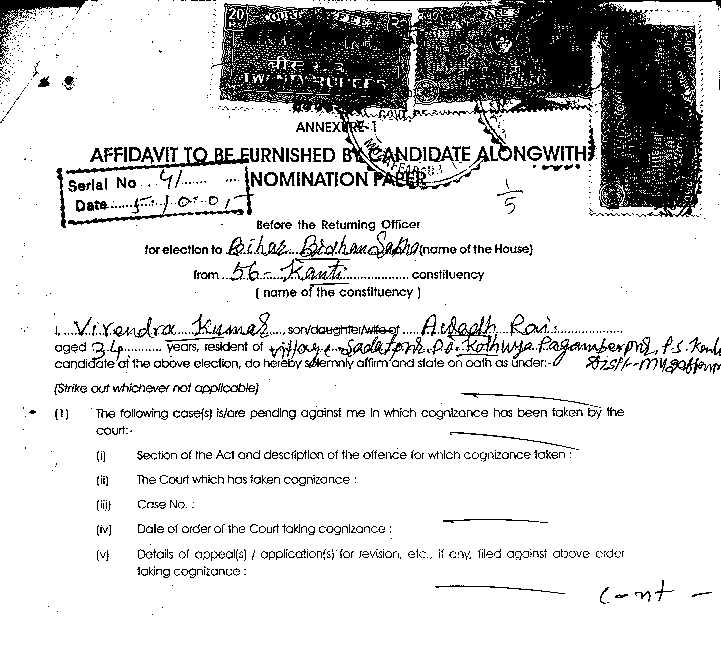 20 COURT FEE
TWENTY RUPEES
ANNEXURE-1
AFFIDAVIT TO BE FURNISHED BY CANDIDATE ALONGWITH
NOMINATION PAPER
Serial No... 41
Date
1/5
Before the Returning Officer
for election to Bihar Bidhan Sabha (name of the House)
from 56- Kanti constituency
( name of the constituency )
I, Virendra Kumar, son/daughter/wife of Awadh Rai
aged 34 years, resident of village- P.O. Kothuya P.S. Kanti
candidate at the above election, do hereby solemnly affirm and state on oath as under:-
(Strike out whichever not applicable)
(1) The following case(s) is/are pending against me in which cognizance has been taken by the
court:-
(i) Section of the Act and description of the offence for which cognizance taken :
(ii) The Court which has taken cognizance :
(iii) Case No. :
(iv) Date of order of the Court taking cognizance :
(v) Details of appeal(s) / application(s) for revision, etc., if any, filed against above order
taking cognizance :
Cont -